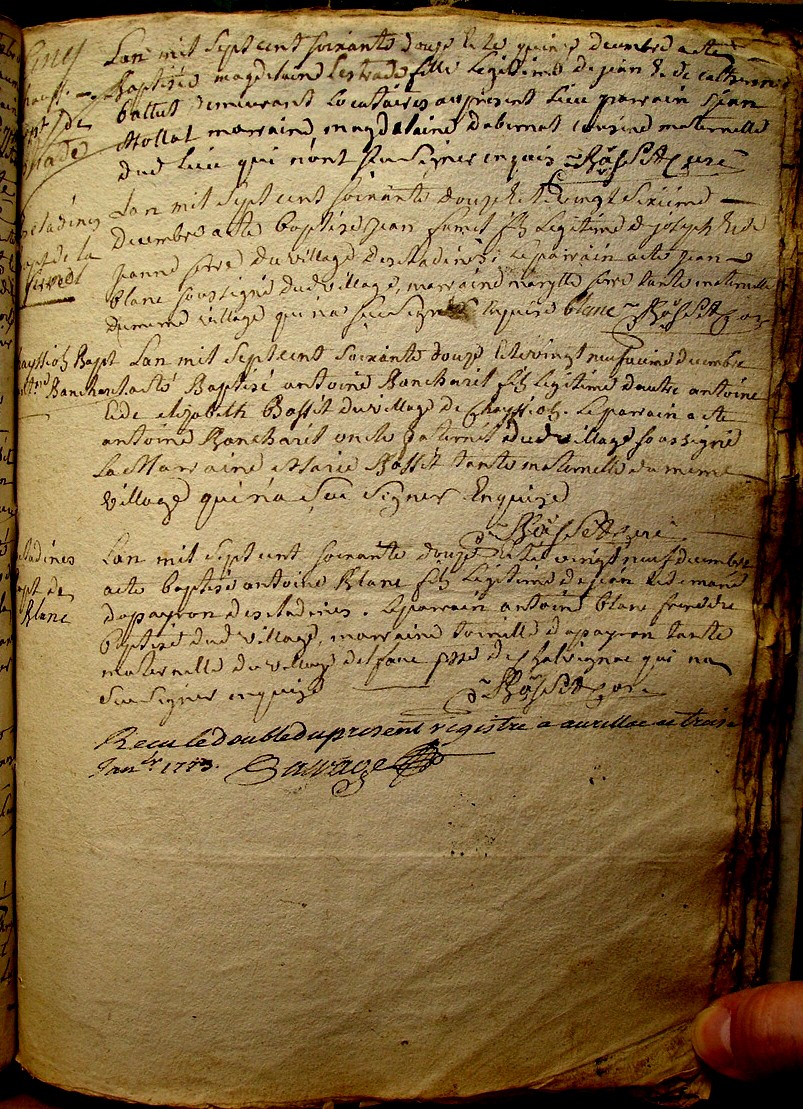 Lan mil Sept cent soixante douze & le quinze decembre a ete
Baptisée magdelaine Lestrade fille Legitime de jean & de catherine
battut demeurant Locataires au present Lieu parrain jean
marraine magdelaine dabernat cousine maternelle
dud Lieu qui n'ont sçu signer enquis Bassit curé
Lan mil Sept cent soixante douze & le vingt sixieme
decembre a ete baptisé jean fils Legitime de joseph & de
jeanne serre du village destadines Le parrain a ete jean
blanc soussigné dud village, marraine serre tante maternelle
du meme village qui na sçu signer enquise blanc Bassit curé
Bapt Lan mil Sept cent Soixante douze & le vingt neufvieme decembre
a eté Baptisé antoine Bancharel fils Legitime dautre antoine
& de elizabeth Bassit du village de Chayssiols. Le parrain a ete
antoine Bancharel oncle paternel dud village soussigné
La Marraine Marie Bassit tante maternelle du meme
village qui n'a Sçu signer Enquise
Bassit curé
Lan mil Sept cent soixante douze & le vingt neuf decembre
a ete baptisé antoine Blanc fils Legitime de jean & de marie
dapeyron destadines. Le parrain antoine blanc frere du
Baptisé dud village, marraine toinette dapeyron tante
maternelle du village psse de Chalvignac qui na
Sçu signer enquise Bassit curé
bapt de
Blanc
Recu le double du present registre a aurillac ce treise
Janvr 1773. Sauvage